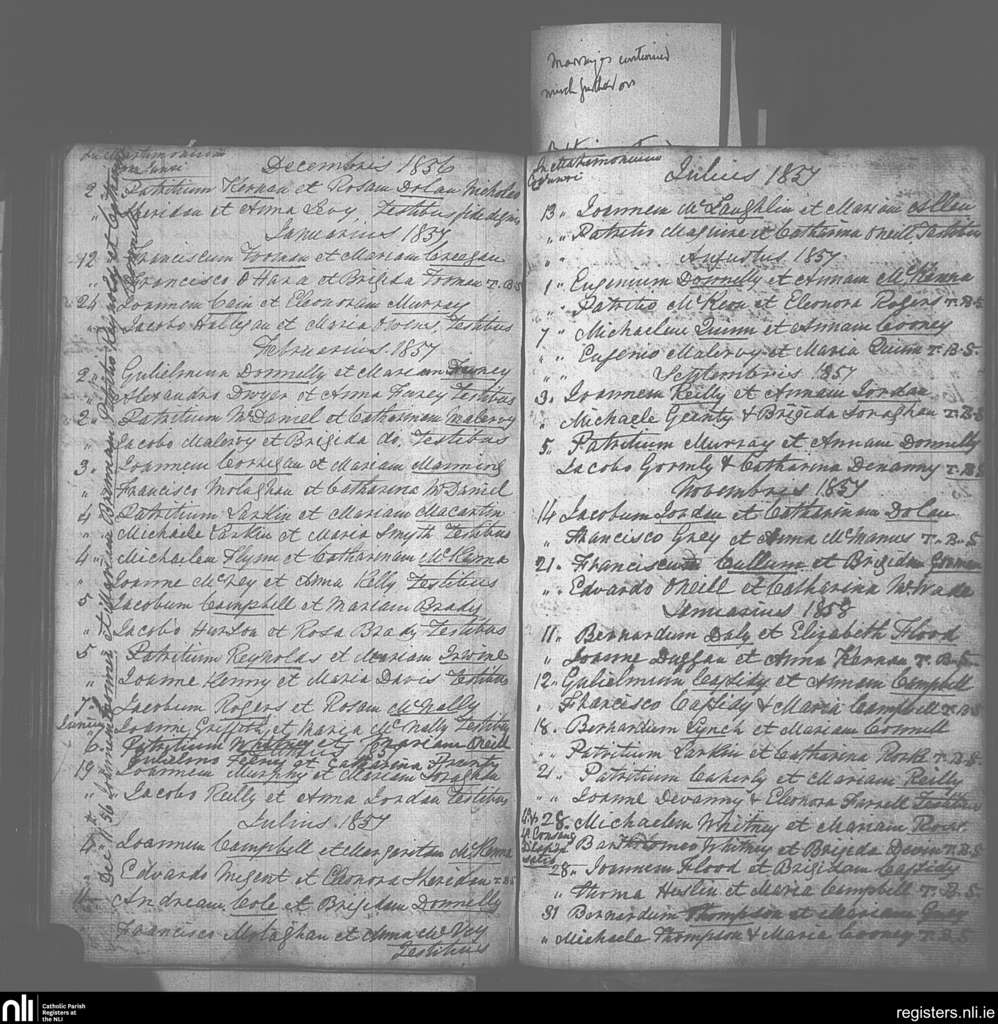 Marriages continued
much further on
In Matrimonium
Conjunxi
Decembris 1856
2 Patritium Kernan et Rosam Dolan Nicholas
" Sheridan et Anna Levy, Testibus fide dignis
Januarius 1857
12 Franciscum Tornan et Mariam Creegan
" Francisco O'Hara et Brigida Tornan T.B.S
24 Joannem Cain et Eleonoram Murray
Jacobo Halligan et Maria Owens, Testibus
Februarius. 1857
2 " Gulielmum Donnelly et Mariam
" Alexandro Dwyer et Anna Furey Testibus
2 " Patritium McDaniel et Catharinam Mulervy
" Jacobo Mulervy et Brigida do. Testibus
3. Joannem Corrigan et Mariam Manning
" Francisco Molaghan et Catharina McDaniel
4 Patritium Larkin et Mariam Macartin
" Michaele Larkin et Maria Smyth Testibus
4 " Michaelem Flynn et Catharinam McKenna
" Joanne McVey et Anna Kelly Testibus
5 Jacobum Campbell et Mariam Brady
" Jacobo Huston et Rosa Brady Testibus
5 Patritium Reynolds et Mariam Irwine
" Joanne Kenny et Maria Davis Testibus
7 Jacobum Rogers et Rosam McNally
Junius " Joanne Griffith et Maria McNally Testibus
6 Patritium Whitney et Mariam Oneill
Gulielmo Feeney et Catharina
19 " Joannem Murphy et Mariam Soraghan
" Jacobo Reilly et Anna Jordan Testibus
Julius. 1857
4 Joannem Campbell et Margaritam McKenna
Edvardo Nugent et Eleonora Sheridan T.B.S
11 Andream Cole et Brigidam Donnelly
Francisco Molaghan et Anna McVey
Testibus
In Matrimonium
Conjunxi
Julius 1857
13 " Joannem McLaughlin et Mariam Allen
" " Patritio Maguire et Catharina Oneill Testibus
" " Augustus. 1857
1 " Eugenium Donnelly et Annam McKenna
" Patritio McKeon et Eleonora Rogers T.B.S
7 " Michaelem Quinn et Annam Cooney
" " Eugenio Mulervy et Maria Quinn T.B.S.
" " Septembris 1857
3. Joannem Reilly et Annam Jordan
" Michaele Geraty & Brigida Soraghan T.B.S
5 " Patritium Murray et Annam Donnelly
Jacobo Gormly & Catharina Denanny T.B.S
Novembris 1857
14 Jacobum Jordan et Catharinam Dolan
" Francisco Grey et Anna McManus T.B.S
21. Franciscum Cullum et Brigidam
" Edvardo Oneill et Catharina McWade
Januarius 1858
11. Bernardum Daly et Elizabeth Flood
" Joanne Duggan et Anna Kernan T.B.S.
12. Gulielmum Cassidy et Annam Campbell
" Francisco Cassidy & Maria Campbell T.B.S
18. Bernardum Lynch et Mariam Connell
" Patritium Larkin et Catharina Rorke T.B.S.
21. Patritium Caherty et Mariam Reilly
" " Joanne Devanny & Eleonora Farrell Testibus
28. Michaelem Whitney et Mariam
" Bartholomeo Whitney et Brigida Devin T.B.S
28 " Joannem Flood et Brigidam Cassidy
" Thoma Heslin et Maria Campbell T.B.S
31 Bernardum Thompson et Mariam Grey
" Michaele Thompson & Maria Cooney T.B.S
nli
Catholic Parish
Registers at
the NLI
registers.nli.ie